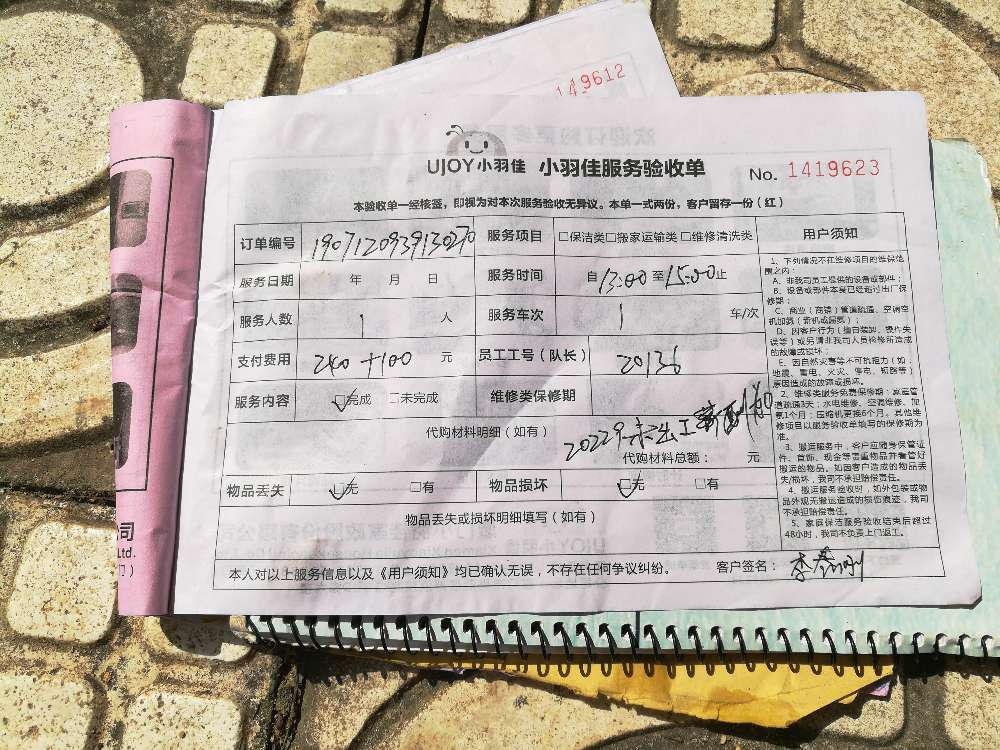 149612
UJOY小羽佳 小羽佳服务验收单 No. 1419623
本验收单一经核签，即视为对本次服务验收无异议。本单一式两份，客户留存一份（红）
订单编号 1907120939130270 服务项目 □保洁类□搬家运输类□维修清洗类 用户须知
服务日期 年 月 日 服务时间 自13:00至15:00止
服务人数 1 人 服务车次 1 车/次
支付费用 240+100 元 员工工号（队长） 20136
服务内容 □完成 □未完成 维修类保修期
代购材料明细（如有）
20229
代购材料总额： 元
物品丢失 □无 □有 物品损坏 □无 □有
物品丢失或损坏明细填写（如有）
本人对以上服务信息以及《用户须知》均已确认无误，不存在任何争议纠纷。 客户签名：
1、下列情况不在维修项目的维保范
围之内：
A、非我司员工提供的设备或部件；
B、设备或部件本身已经超过出厂保
修期；
C、商业（商铺）管道疏通、空调容
机加氨（新机或漏氨）；
D、因客户行为（擅自装卸、操作失
误等）或另请非我司人员检修所造成
的故障或损坏；
E、因自然灾害等不可抗拒力（如：
地震、雷电、火灾、停电、短路等）
原因造成的故障或损坏。
2、维修类服务免费保修期：家庭管
道疏通3天；水电维修、空调维修、加
氨1个月；压缩机更换6个月。其他维
修项目以服务验收单填写的保修期为
准。
3、搬运服务中，客户应随身保管证
件、首饰、现金等贵重物品并看管好
搬运的物品。如因客户造成的物品丢
失/损坏，我司不承担赔偿责任。
4、搬运服务验收时，如外包装或物
品外观无搬运造成的损伤痕迹，我司
不承担赔偿责任。
5、家庭保洁服务验收结束后超过
48小时，我司不负责上门返工。
司
Ltd.
门）